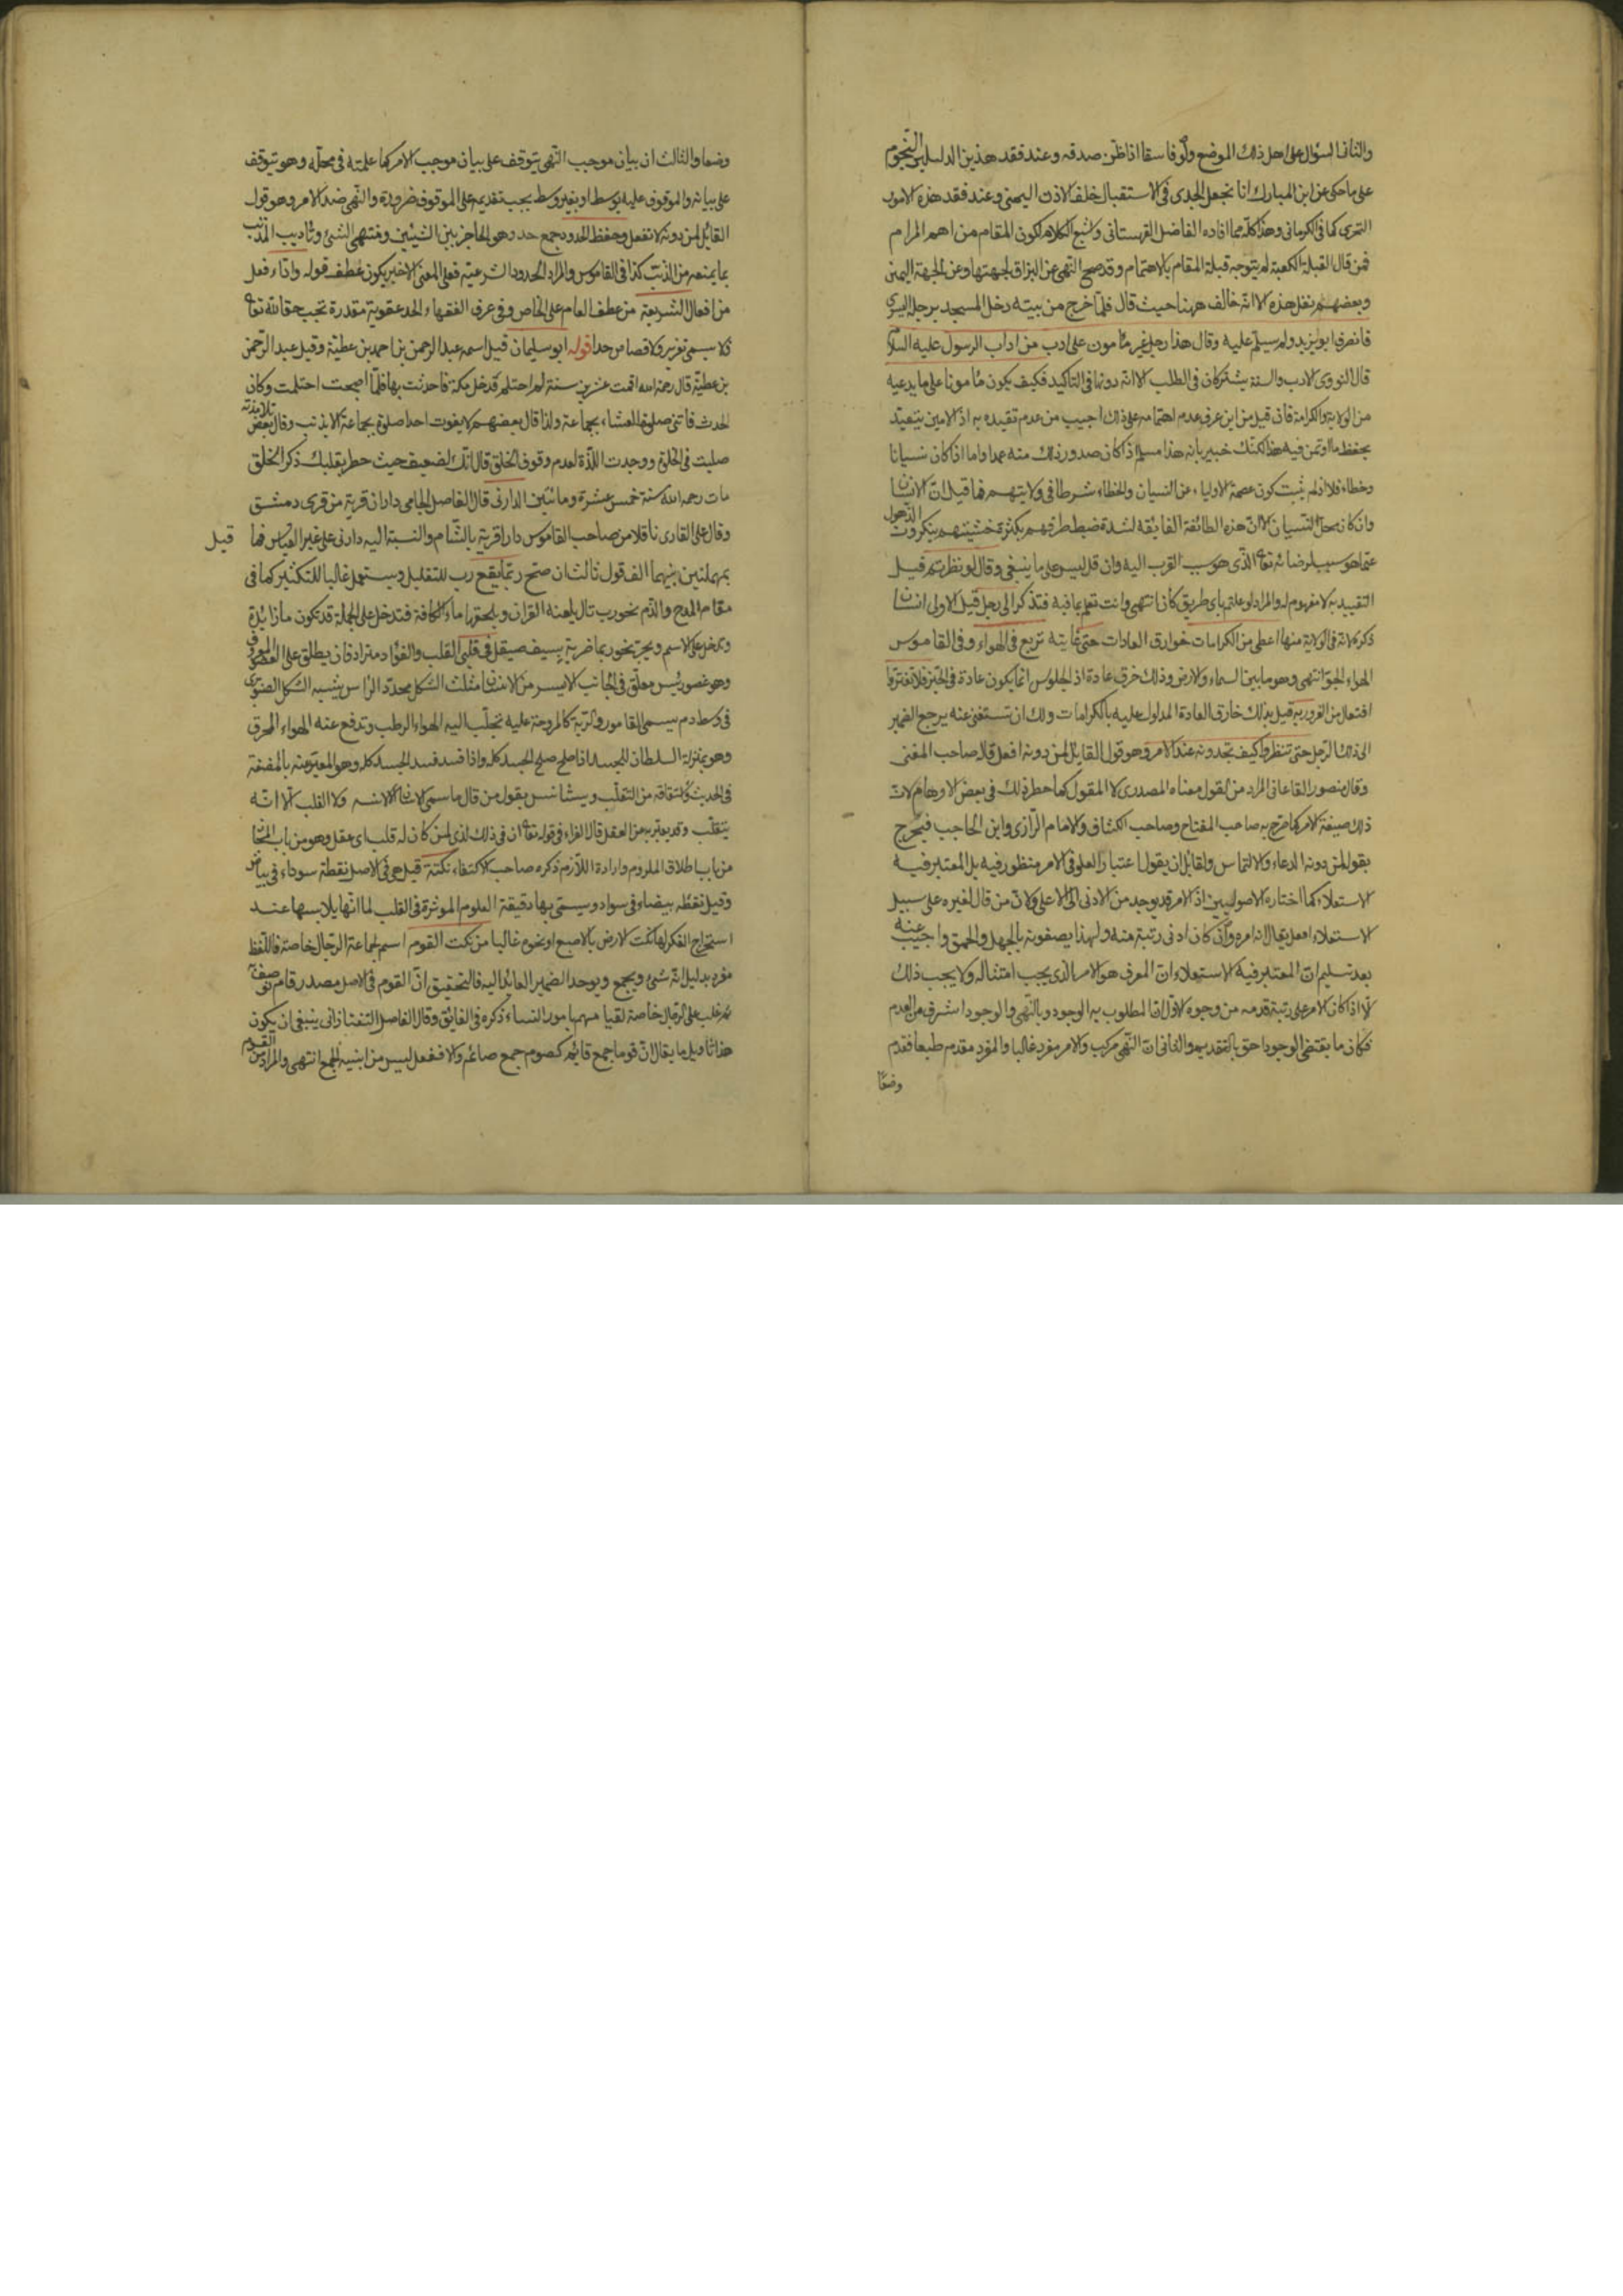 والثانى السؤال على اهل ذلك الموضع ولو فاسقا اذا ظن صدقه وعند فقد هذين الدليلين النجوم
على ما حكى عن ابن المبارك انا نجعل الجدى فى الاستقبال خلف الاذن اليمنى وعند فقد هذه الامور
التحرى كما فى الكرمانى وهذا كله مما افاده الفاضل القهستانى الكلام لكون المقام من اهم المرام
فمن قال القبلة الكعبة لم يتوجه قبلة المقام بالاهتمام وقد صح النهى عن البزاق لجهتها وعن الجهة اليمين
وبعضهم نقل هذه الا انه خالف ههنا حيث قال فلما خرج من بيته دخل المسجد برجله اليسرى
فانصرف ابو يزيد ولم يسلم عليه وقال هذا رجل غير مأمون على ادب من اداب الرسول عليه السلام
قال النووى الادب والسنة يشتركان فى الطلب الا انه دونها فى التأكيد فكيف يكون مأمونا على ما يدعيه
من الولاية والكرامة فان قيل من اين عرف عدم اهتمامه على ذلك اجيب من عدم تقيده به اذ الامين يتقيد
بحفظ ما اؤتمن فيه هذا لكنك خبير بانه هذا مسلم اذ كان صدور ذلك منه عمدا واما اذا كان نسيانا
وخطاء فلا اذ لم يثبت كون عصمة الاولياء عن النسيان والخطاء شرطا فى ولايتهم فما قيل ان الانسان
وان كان محل النسيان الا ان هذه الطائفة الفايقة لشدة ضبط طرقهم بكثرة خشيتهم ينكرون الذهول
عما هو سبب لرضائه تعالى الذى هو سبب القرب اليه وان قل ليس على ما ينبغى وقال لو نظرتم قيل
التقييد به لا مفهوم له والمراد لو علمتم باى طريق كان انتهى وانت تعلم ما فيه فتذكر الى رجل قيل الاولى انسان
ذكره لانه فى الولاية منها اعطى من الكرامات خوارق العادات حتى غايته تربع فى الهواء وفى القاموس
الهواء الجو انتهى وهو ما بين السماء والارض وذلك خرق عادة اذ الجلوس انما يكون عادة فى الحيز فلا تغتروا
افتعل من الغرور به قيل بذلك خارق العادة المدلول عليه بالكرامات ولك ان تستغنى عنه يرجع الضمير
الى ذلك الرجل حتى تنظروا كيف تجدونه عند الامر وهو قول القايل لمن دونه افعل قاله صاحب المغنى
وقال منصور القاعانى المراد من القول معناه المصدرى لا المقول كما خطر ذلك فى بعض الاوهام لان
ذلك صيغة الامر كما صرح به صاحب المفتاح وصاحب الكشاف والامام الرازى وابن الحاجب فيخرج
بقوله لمن دونه الدعاء والالتماس ولقايل ان يقول اعتبار العلو فى الامر منظور فيه بل المعتبر فيه
الاستعلاء كما اختاره الاصوليين اذ الامر قد يوجد من الادنى الى الاعلى ولان من قال لغيره على سبيل
الاستعلاء افعل يقال انه امره وان كان ادنى رتبة منه ولهذا يصفونه بالجهل والحمق واجيب عنه
بعد تسليم ان المعتبر فيه الاستعلاء ان المعرف هو الامر الذى يجب امتثاله ولا يجب ذلك
الا اذا كان الامر على رتبة قدمه من وجوه الاول ان المطلوب به الوجود وبالنهى والوجود اشرف من العدم
فكان ما يقتضى الوجود احق بالتقديم والثانى ان النهى مركب والامر مفرد غالبا والمفرد مقدم طبعا فقدم
وضعا
وضعا والثالث ان بيان موجب النهى يتوقف على بيان موجب الامر كما علمته فى محله وهو يتوقف
على بيانه والموقوف عليه بوسط او بغير وسط يجب تقديمه على الموقوف ضرورة والنهى ضد الامر وهو قول
القائل لمن دونه لا تفعل وحفظ الحدود جمع حد وهو الحاجز بين الشيئين ومنتهى الشئ وتأديب المذنب
بما يمنعه من الذنب كذا فى القاموس والمراد الحدود الشرعية فعلى المعنى الاخير يكون عطف قوله واداء فعل
من افعال الشريعة من عطف العام على الخاص وفى عرف الفقهاء الحد عقوبة مقدرة تجب حقا لله تعالى
فلا يسمى تعزير ولا قصاص حدا قوله ابو سليمان قيل اسمه عبد الرحمن بن احمد بن عطية وقيل عبد الرحمن
بن عطية قال رحمه الله اقمت عشرين سنة لم احتلم فدخل مكة فاحدثت بها فلما اصبحت احتلمت وكان
الحدث فاتتنى صلوة العشاء بجماعة ولذا قال بعضهم لا يفوت احدا صلوة بجماعة الا بذنب وقال بعض تلامذته
صليت فى الخلوة ووجدت اللذة لعدم وقوف الخلق قال انك لضعيف حيث خطر بقلبك ذكر الخلق
مات رحمه الله سنة خمس عشرة ومائتين الدارنى قال الفاضل الجامى داران قرية من قرى دمشق
وقال على القارى ناقلا من صاحب القاموس داريا قرية بالشام والنسبة اليه دارنى على غير القياس فما قيل
بمهملتين بينهما الف قول ثالث ان صح ربما يقع رب للتقليل ويستعمل غالبا للتكثير كما فى
مقام المدح والذم نحو رب تال يلعنه القران ويلحقها ماء الكافة فتدخل على الجملة قد تكون ما زايدة
وتدخل على الاسم ويجر نحو ربما ضربة بسيف صيقل فى قلبى القلب والفؤاد مترادفان يطلق على العضو المعروف
وهو عضو رئيس معلق فى الجانب الايسر من الانسان مثلث الشكل محدد الراس يشبه الشكل الصنوبرى
فى وسط دم يسمى القامور والرية كالمروحة عليه تجلب اليه الهواء الرطب وتدفع عنه الهواء المحرق
وهو بمنزلة السلطان للجسد اذا صلح صلح الجسد كله واذا فسد فسد الجسد كله وهو المعبر عنه بالمضغة
فى الحديث واشتقاقه من التقلب ويستأنس بقول من قال ما سمى الانسان الا لانسه ولا القلب الا انه
يتقلب وقد يعبر به عن العقل قال الفراء فى قوله تعالى ان فى ذلك لذكرى لمن كان له قلب اى عقل وهو من باب المجاز
من باب اطلاق الملزوم وارادة اللازم ذكره صاحب الاكتفاء نكتة قيل هى فى الاصل نقطة سوداء فى بياض
وقيل نقطة بيضاء فى سواد ويسمى بها دقيقة العلوم الموثرة فى القلب لما انها يلابسها عند
استخراج الفكر لها نكت الارض بالاصبع او نحوه غالبا من نكت القوم اسم لجماعة الرجال خاصة فاللفظ
مفرد بدليل انه يثنى ويجمع ويوحد الضمير العائد اليه فالتحقيق ان القوم فى الاصل مصدر قام
ثم غلب على الرجال خاصة لقيامهم بامور النساء ذكره فى الفائق وقال الفاضل التفتازانى ينبغى ان يكون
هذا تأويل ما يقال ان قوما جمع قائم كصوم جمع صائم والا ففعل ليس من ابنية الجمع انتهى والمراد من القوم